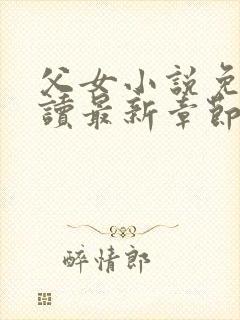 父女小說免
讀最新章節
醉情郎